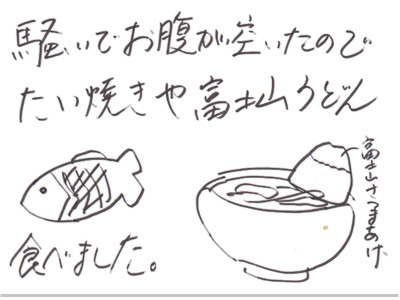 騒いでお腹が空いたので
たい焼きや富士山うどん
富士山さつまあげ
食べました。